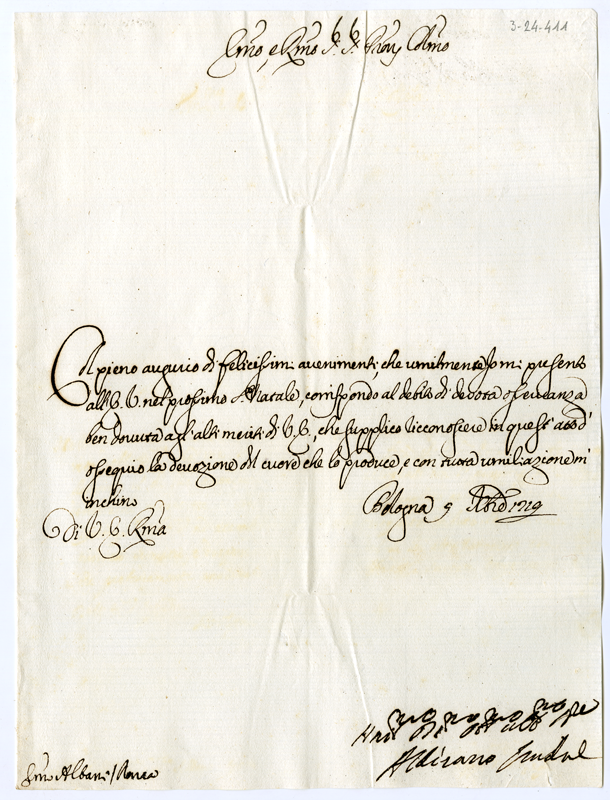 3-24-411
Emo, e Rmo S.r S.r Prõn Colmo
Col pieno augurio di felicissimi avenimenti, che umilmente Io mi presento
all'E. V. nel prossimo S. Natale, corrispondo al debito di devota osservanza
ben dovuta agl'alti meriti di V. E., che supplico riconoscere in quest'atto d'
ossequio la devozione del cuore che lo produce, e con tutta umiliazione m'
inchino
Di V. E. Rma
Bologna 9 Xbre 1719
Emo Albani / Roma